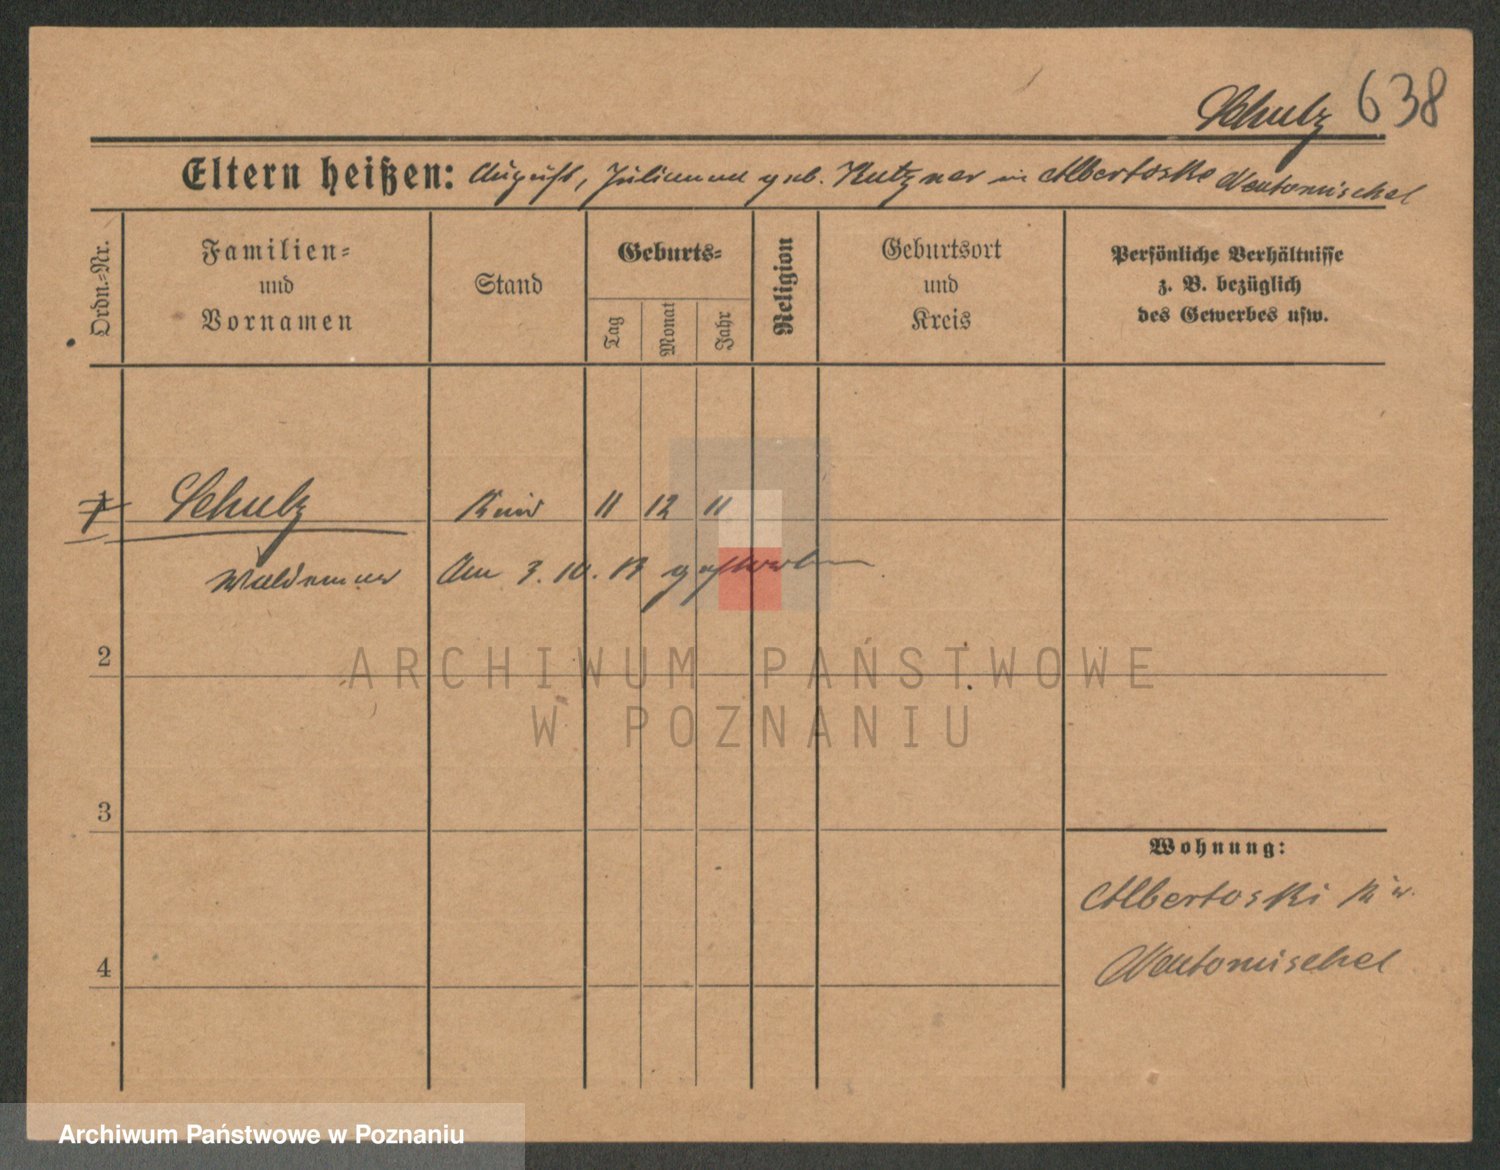 Schulz 638
Eltern heißen: August, Julianna geb. Kutzner in Albertoske Neutomischel
Ordn.-Nr.
Familien-
und
Vornamen
Stand
Geburts-
Tag
Monat
Jahr
Religion
Geburtsort
und
Kreis
Persönliche Verhältnisse
z. B. bezüglich
des Gewerbes usw.
1 Schulz Kind 11 12 11
Waldemar Am 3. 10. 13 gestorben
2
ARCHIWUM PAŃSTWOWE
W POZNANIU
3
Wohnung:
Albertoski
4
Neutomischel
Archiwum Państwowe w Poznaniu